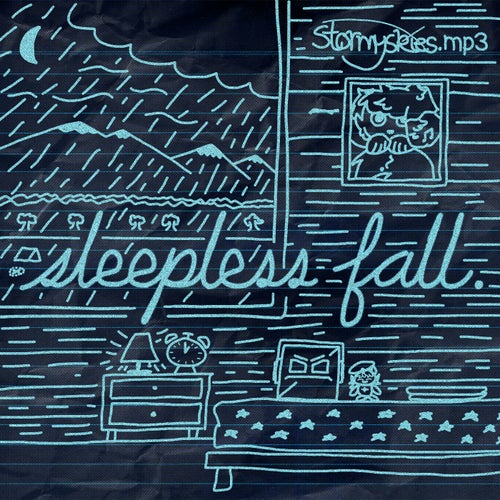 stormyskies.mp3
sleepless fall.